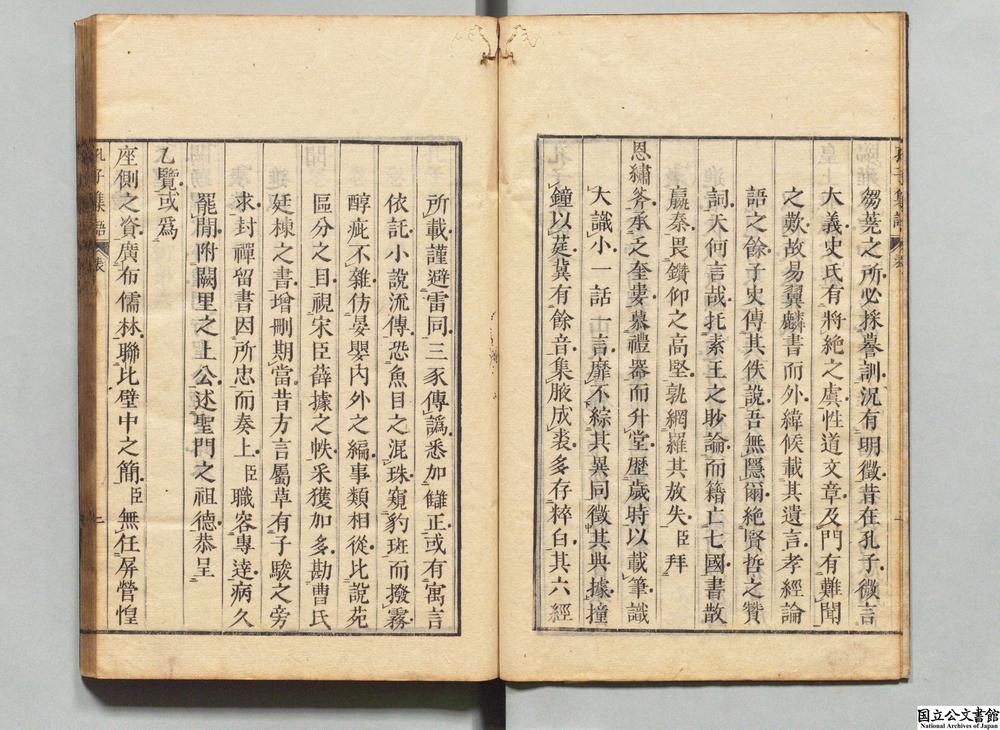 芻蕘之所必採謩訓況有明徵昔在孔子微言
大義史氏有將絶之虞性道文章及門有難聞
之歎故易翼麟書而外緯候載其遺言孝經論
語之餘子史傳其佚說吾無隱爾絶賢哲之贊
詞天何言哉托素王之眇論而籍亡七國書散
嬴秦畏鑽仰之高堅孰網羅其放失臣拜
恩繡斧承乏奎婁慕禮器而升堂歷歲時以載筆識
大識小一話一言靡不綜其異同徵其與據撞
鐘以莛冀有餘音集腋成裘多存粹白其六經
所載謹避雷同三豕傳譌悉加讎正或有寓言
依託小說流傳恐魚目之混珠窺豹班而撥霧
醇疵不雜仿晏嬰内外之編事類相從比說苑
區分之目視宋臣薛據之帙采獲加多勘曹氏
廷棟之書增刪期當昔方言屬草有子駿之旁
求封禪留書因所忠而奏上臣職容專達病久
罷閒附闕里之上公述聖門之祖德恭呈
乙覽或爲
座側之資廣布儒林聯比壁中之簡臣無任屏營惶
孔子集語
表
二
国立公文書館
National Archives of Japan